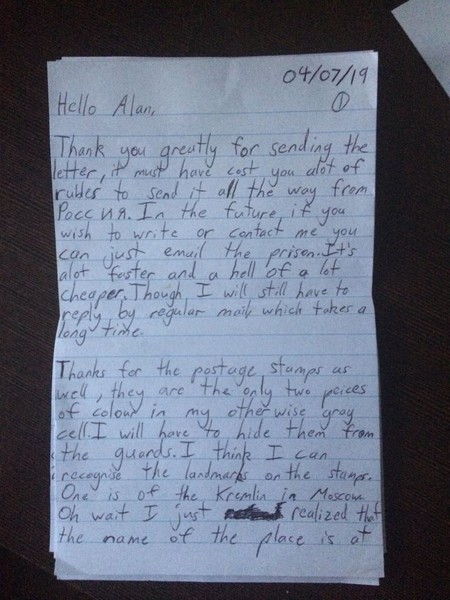 04/07/19
①
Hello Alan,
Thank you greatly for sending the
letter, it must have cost you alot of
rubles to send it all the way from
РоссИЯ. In the future, if you
wish to write or contact me you
can just email the prison. It's
alot faster and a hell of a lot
cheaper. Though I will still have to
reply by regular mail which takes a
long time.
Thanks for the postage stamps as
well, they are the only two peices
of colour in my otherwise gray
cell. I will have to hide them from
the guards. I think I can
recognise the landmarks on the stamps.
One is of the Kremlin in Moscow
Oh wait I just realized that
the name of the place is at